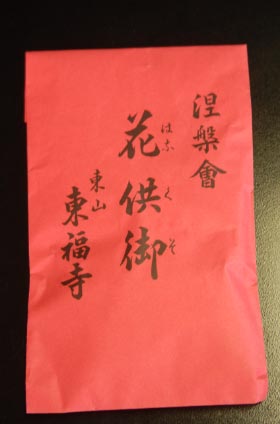 涅槃會
花供御
はな くそ
東山
東福寺